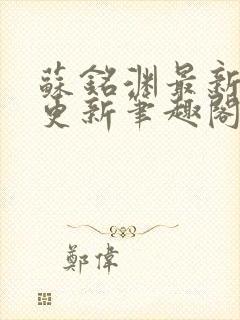 蘇銘淵最新
更新筆趣閣
鄭偉